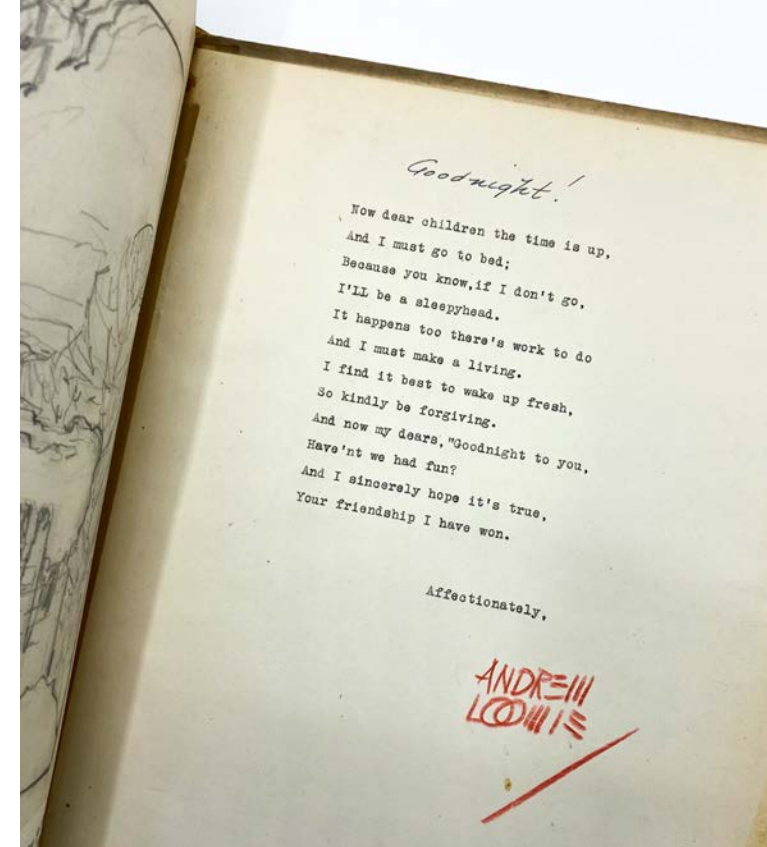 Goodnight!
Now dear children the time is up,
And I must go to bed;
Because you know,if I don't go,
I'LL be a sleepyhead.
It happens too there's work to do
And I must make a living.
I find it best to wake up fresh,
So kindly be forgiving.
And now my dears,"Goodnight to you,
Have'nt we had fun?
And I sincerely hope it's true,
Your friendship I have won.
Affectionately,
ANDREW
LOOMIS